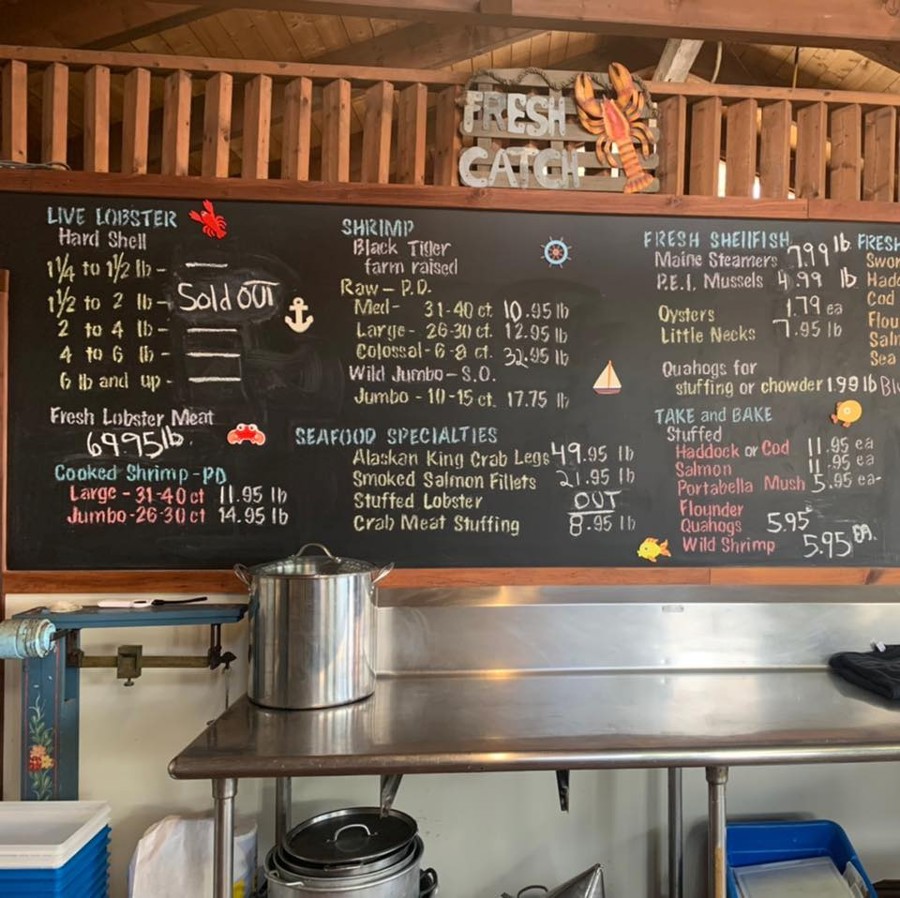 FRESH
CATCH
LIVE LOBSTER
Hard Shell
1¼ to 1½ lb –
1½ to 2 lb – Sold OUT
2 to 4 lb –
4 to 6 lb –
6 lb and up –
Fresh Lobster Meat
69.95 lb
Cooked Shrimp - PD
Large - 31-40 ct 11.95 lb
Jumbo - 26-30 ct 14.95 lb
SHRIMP
Black Tiger
farm raised
Raw – P.D.
Med – 31-40 ct 10.95 lb
Large - 26-30 ct. 12.95 lb
Colossal - 6-8 ct. 32.95 lb
Wild Jumbo – S.O.
Jumbo - 10-15 ct. 17.75 lb
SEAFOOD SPECIALTIES
Alaskan King Crab Legs 49.95 lb
Smoked Salmon Fillets 21.95 lb
Stuffed Lobster OUT
Crab Meat Stuffing 8.95 lb
FRESH SHELLFISH
Maine Steamers 7.99 lb
P.E.I. Mussels 4.99 lb
Oysters 1.79 ea
Little Necks 7.95 lb
Quahogs for
stuffing or chowder 1.99 lb
TAKE and BAKE
Stuffed
Haddock or Cod 11.95 ea
Salmon 11.95 ea
Portabella Mush 5.95 ea
Flounder
Quahogs 5.95
Wild Shrimp 5.95 EA.
FRESH
Swor
Hadd
Cod
Flou
Saln
Sea